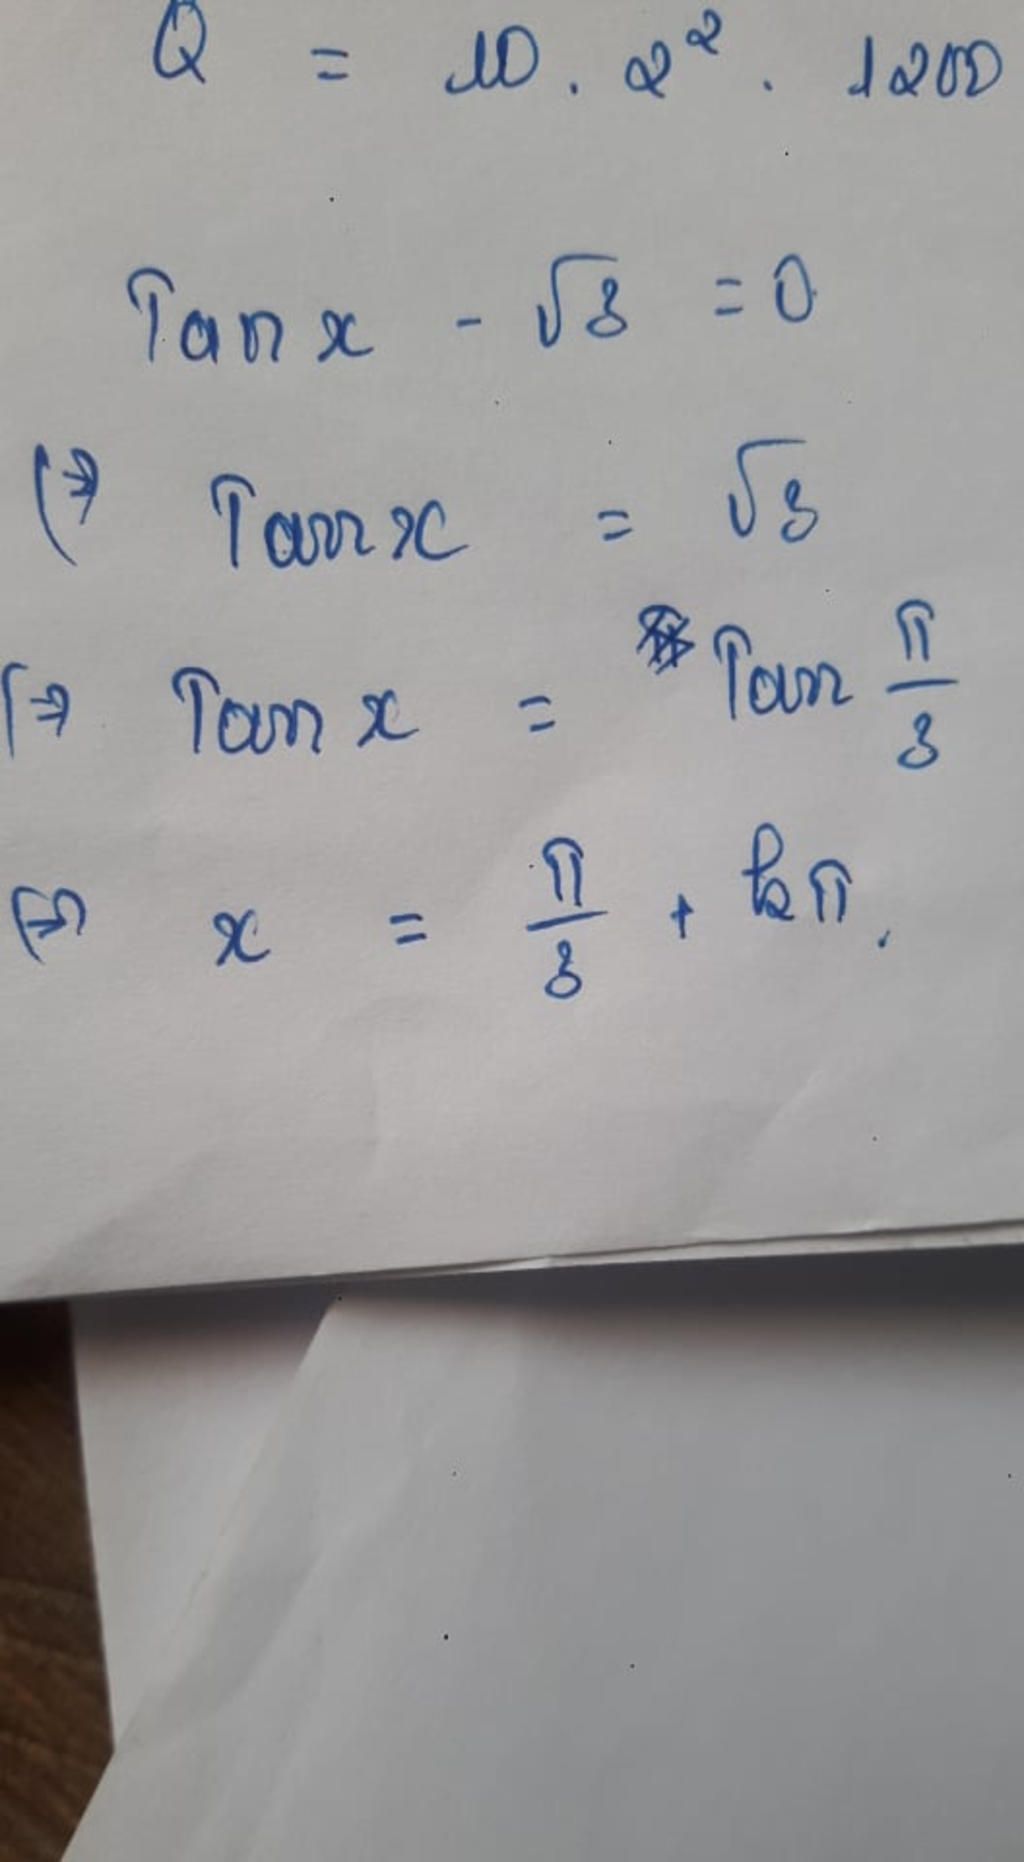 Q = 10 . 2² . 1200
Tan x - √3 = 0
(=> Tan x = √3
(=> Tan x = Tan π/3
(=> x = π/3 + kπ.